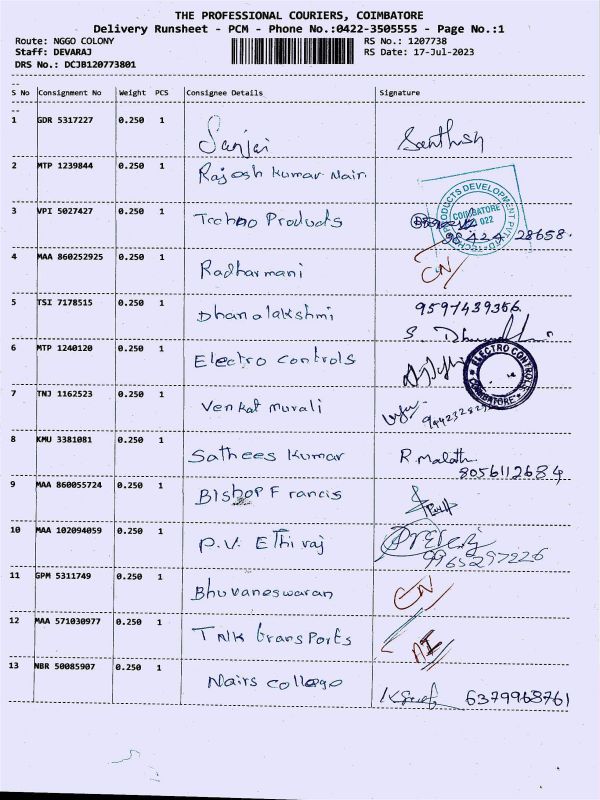 THE PROFESSIONAL COURIERS, COIMBATORE
Delivery Runsheet - PCM - Phone No.:0422-3505555 - Page No.:1
Route: NGGO COLONY RS No.: 1207738
Staff: DEVARAJ RS Date: 17-Jul-2023
DRS No.: DCJB120773801
S No Consignment No Weight PCS Consignee Details Signature
1 GDR 5317227 0.250 1 Sanjai Santhosh
2 MTP 1239844 0.250 1 Rajesh Kumar Nair
3 VPI 5027427 0.250 1 Techno Products 98424 28658.
PRODUCTS DEVELOPMENT PVT.LTD
COIMBATORE
022
4 MAA 860252925 0.250 1 Radharmani CN
5 TSI 7178515 0.250 1 Dhanalakshmi 9597439366.
6 MTP 1240120 0.250 1 Electro controls
ELECTRO CONTROLS
COIMBATORE
7 TNJ 1162523 0.250 1 Venkat murali
8 KMU 3381081 0.250 1 Sathees Kumar R. Malath
8056112684
9 MAA 860055724 0.250 1 Bishop Francis
10 MAA 102094059 0.250 1 P.V. Ethiraj
9965297226
11 GPM 5311749 0.250 1 Bhuvaneswaran CN
12 MAA 571030977 0.250 1 TNK transports
13 NBR 50085907 0.250 1 Nairs college 6379968761